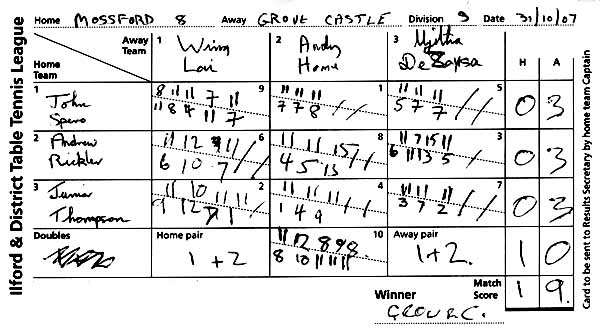 Ilford & District Table Tennis League
Home MOSSFORD 8 Away GROVE CASTLE Division 3 Date 31/10/07
Away Team
Home Team
1 Wing Lai
2 Andy Home
3 De Zoysa
H A
1 John Spero
8 11 11 7 11 9
11 8 4 11 7
11 11 11 1
7 7 8 / /
11 11 11 5
5 7 7 / /
0 3
2 Andrew Rickler
11 12 11 / 6
6 10 7 /
11 11 15 8
4 5 13
11 7 15 11 3
6 11 13 5 /
0 3
3 Junior Thompson
11 10 11 11 2
9 12 7 1
11 11 11 4
1 4 9
11 11 11 7
3 7 2 / /
0 3
Doubles
Home pair
1 + 2
10
11 12 8 9 8
8 10 11 11 11
Away pair
1 + 2.
1 0
Winner
GROVE C.
Match Score
1 9.
Card to be sent to Results Secretary by home team Captain